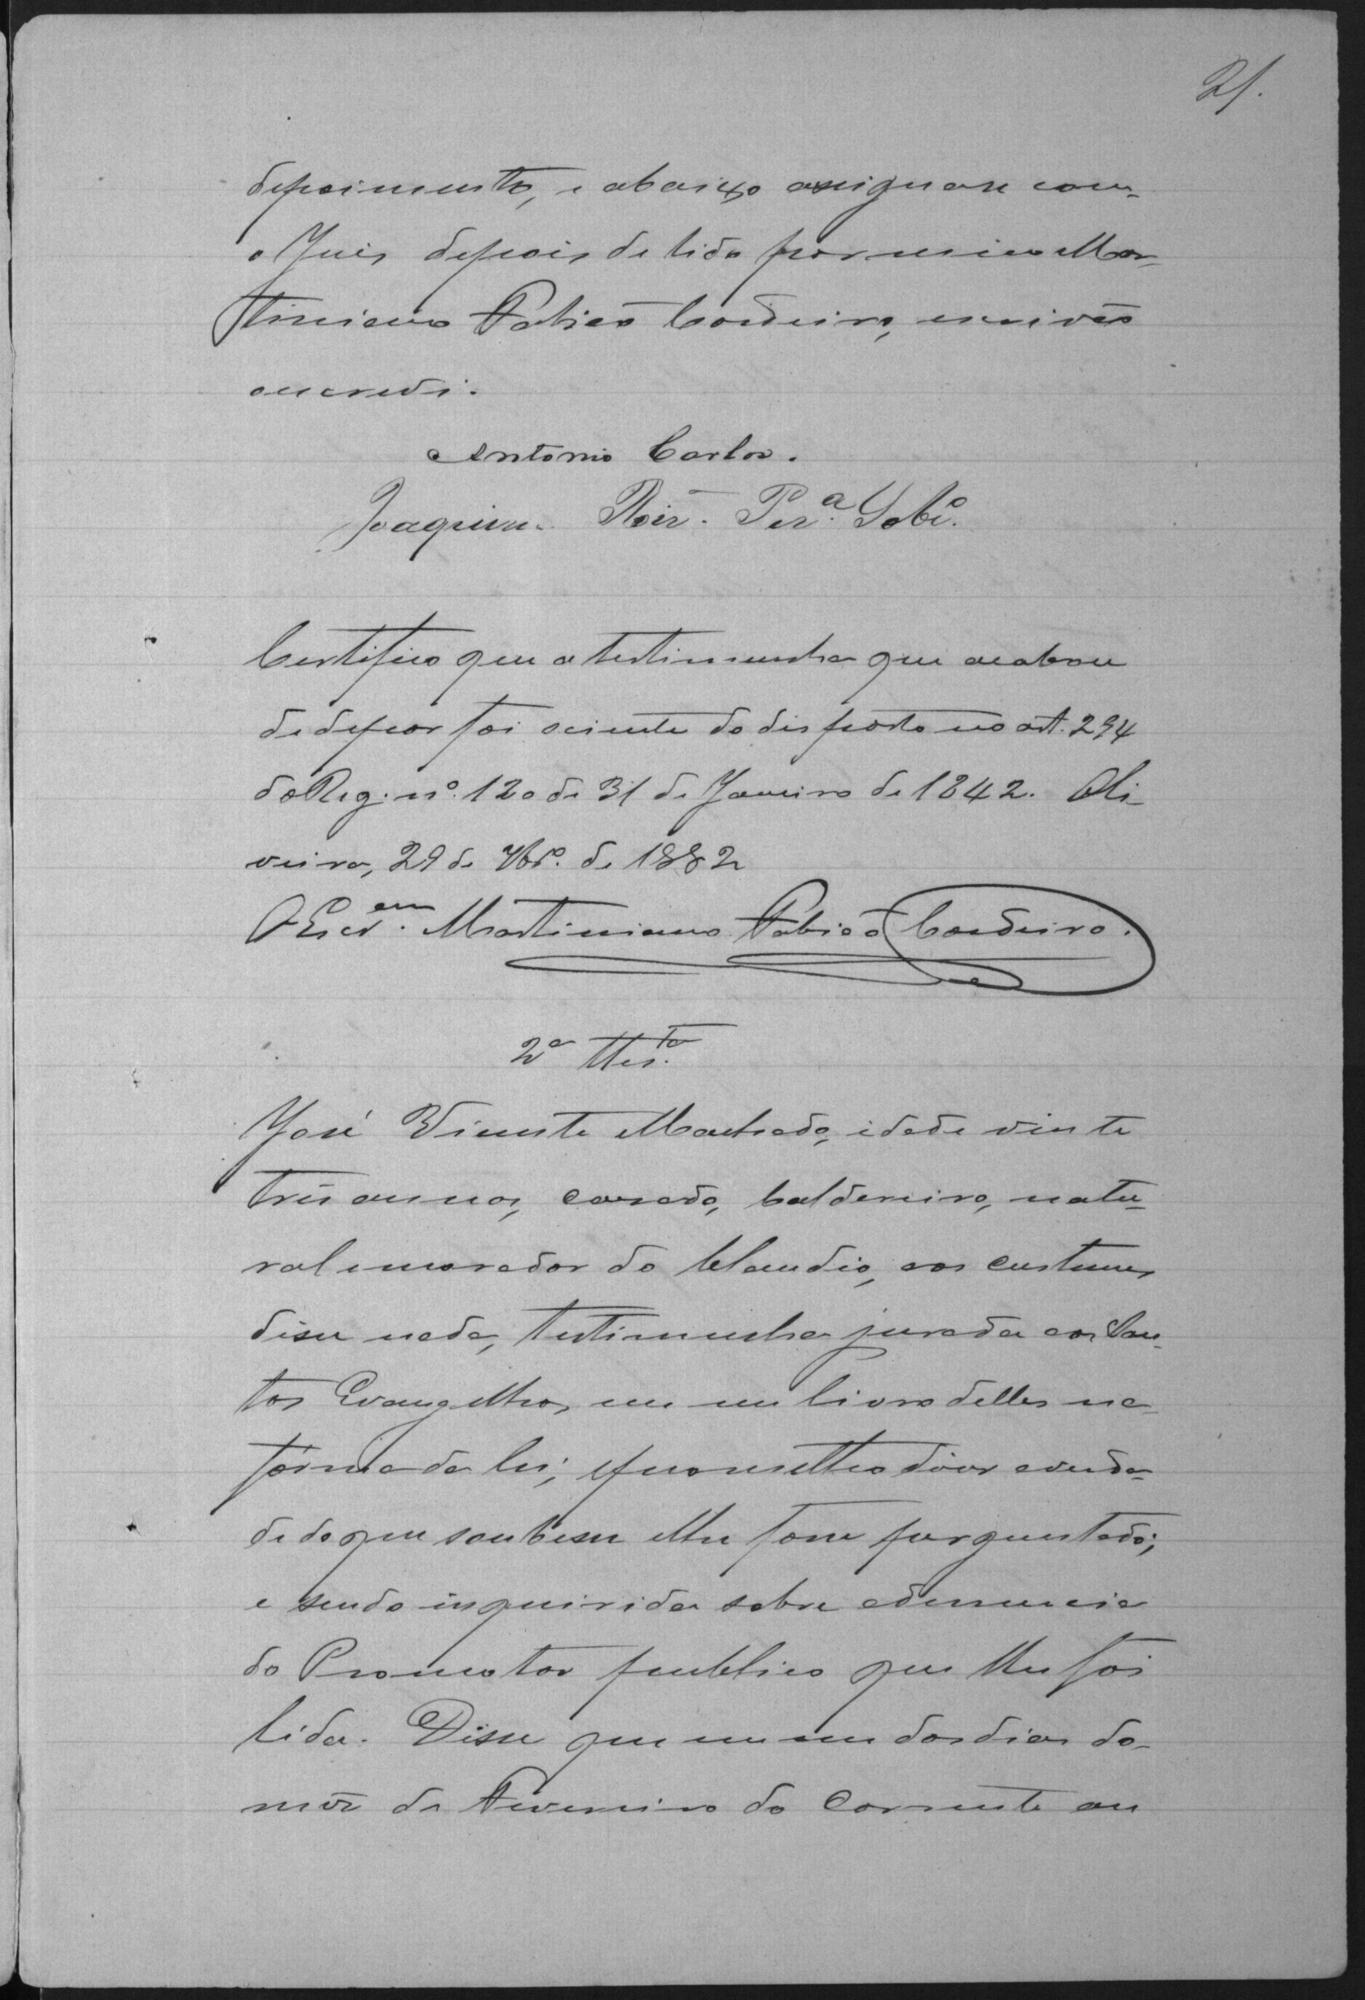 21.
depoimento, e abaixo assignase com
o Juis depois de lido por mim Mar-
tiniano Fabião Cordeiro, escrivão
escrevi.
Antonio Carlos.
Joaquim Roiz. Per.ª Sobr.º
Certifico que a testimunha que acabou
de depor foi sciente do disposto no art. 294
do Reg. nº. 120 de 31 de Janeiro de 1842. Oli-
veira, 29 de 9br.º de 1882
O Escr.am Martiniano Fabião Cordeiro.
2ª Tes.ta
José Vicente Machado, idade vinte
tres annos, casado, caldereiro, natu-
ral e morador do Claudio, aos custumes
disse nada, testimunha jurada aos San-
tos Evangelhos, em um livro delles na
fórma da lei, e prometteo diser a verda-
de do que soubesse e lhe fosse perguntado;
e sendo inquirida sobre a denuncia
do Promotor publico que lhe foi
lida. Disse que em um dos dias do
mês de Fevereiro do corrente an